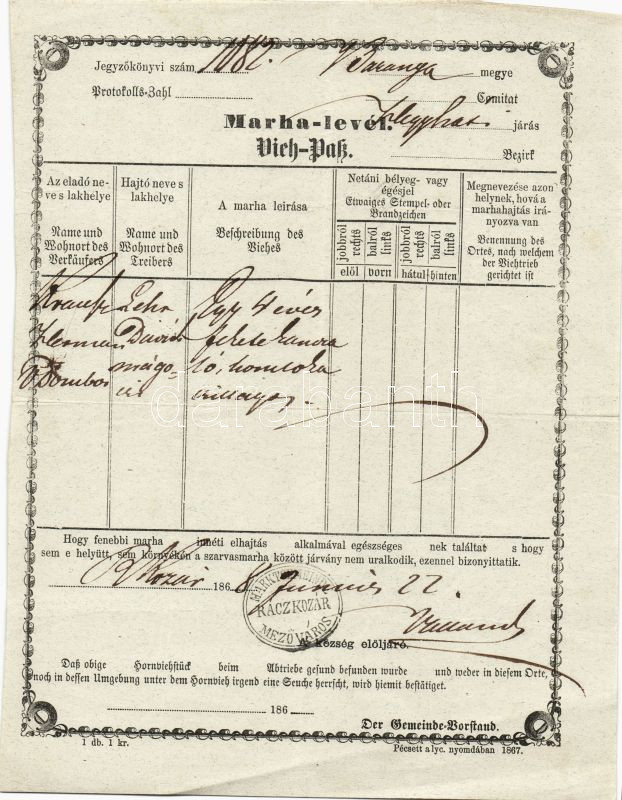 Jegyzőkönyvi szám 1082. Baranya megye
Protokolls-Zahl Comitat
Marha-levél. járás
Vieh-Paß. Bezirk
Az eladó ne-
ve s lakhelye
Name und
Wohnort des
Verkäufers
Hajtó neve s
lakhelye
Name und
Wohnort des
Treibers
A marha leirása
Beschreibung des
Viehes
Netáni bélyeg- vagy
égésjel
Etwaiges Stempel- oder
Brandzeichen
jobbról rechts balról links jobbról rechts balról links
elől vorn hátul hinten
Megnevezése azon
helynek, hová a
marhahajtás irá-
nyozva van
Benennung des
Ortes, nach welchem
der Viehtrieb
gerichtet ist
Egy 4 éves
Herman David fekete kanca
Bombos mágo- ló, homloka
csi csillagos.
darabanth
Hogy fenebbi marha innéti elhajtás alkalmával egészséges nek találtat s hogy
sem e helyütt, sem környékén a szarvasmarha között járvány nem uralkodik, ezennel bizonyittatik.
R Kozár 186 8 Junius 22.
RÁCZKOZÁR
MEZŐ VÁROS
A község elöljáró.
Daß obige Hornviehstück beim Abtriebe gesund befunden wurde und weder in diesem Orte,
noch in dessen Umgebung unter dem Hornvieh irgend eine Seuche herrscht, wird hiemit bestätiget.
186
Der Gemeinde-Vorstand.
1 db. 1 kr. Pécsett a lyc. nyomdában 1867.